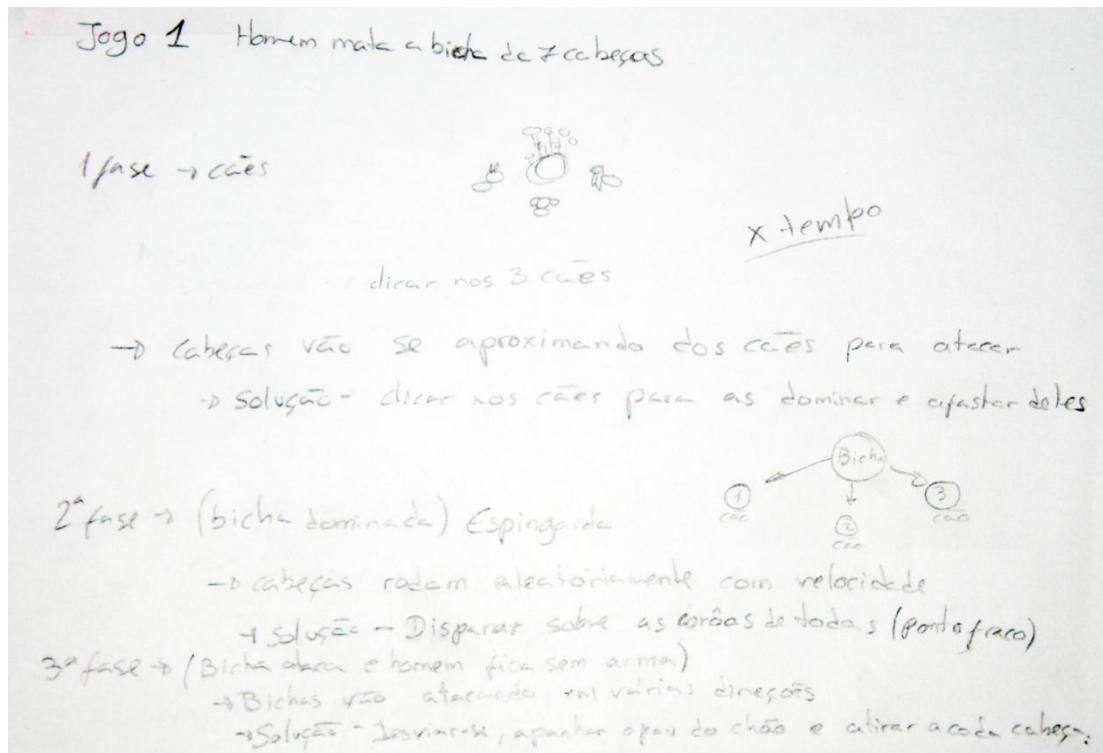 Jogo 1 Homem mata a bicha de 7 cabeças
1 fase → cães
x tempo
clicar nos 3 cães
→ cabeças vão se aproximando dos cães para atacar
→ Solução - clicar nos cães para as dominar e afastar deles
Bicha
1 cão
2 cão
3 cão
2ª fase → (bicha dominada) Espingarda
→ cabeças rodam aleatóriamente com velocidade
→ Solução - Disparar sobre as corôas de todas (ponto fraco)
3ª fase → (Bicha ataca e homem fica sem arma)
→ Bichas vão atacando em várias direções
→ Solução - Desviar-se, apanhar o pau do chão e atirar a cada cabeça.